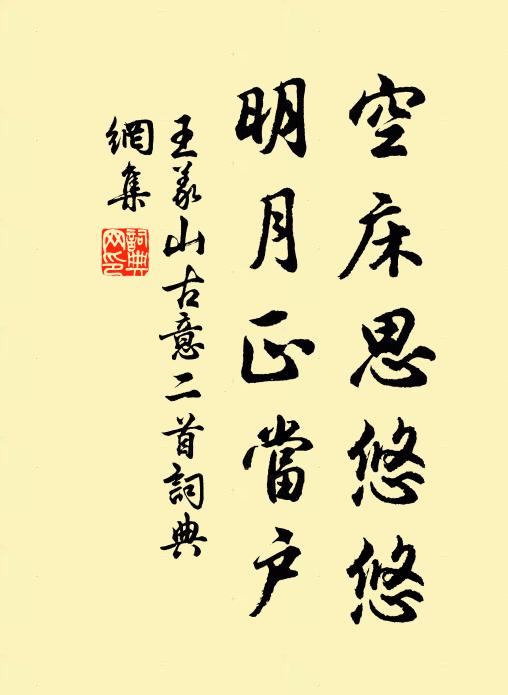 空床思悠悠
明月正當户
王義山古意二首詞典
網集
詞典網印